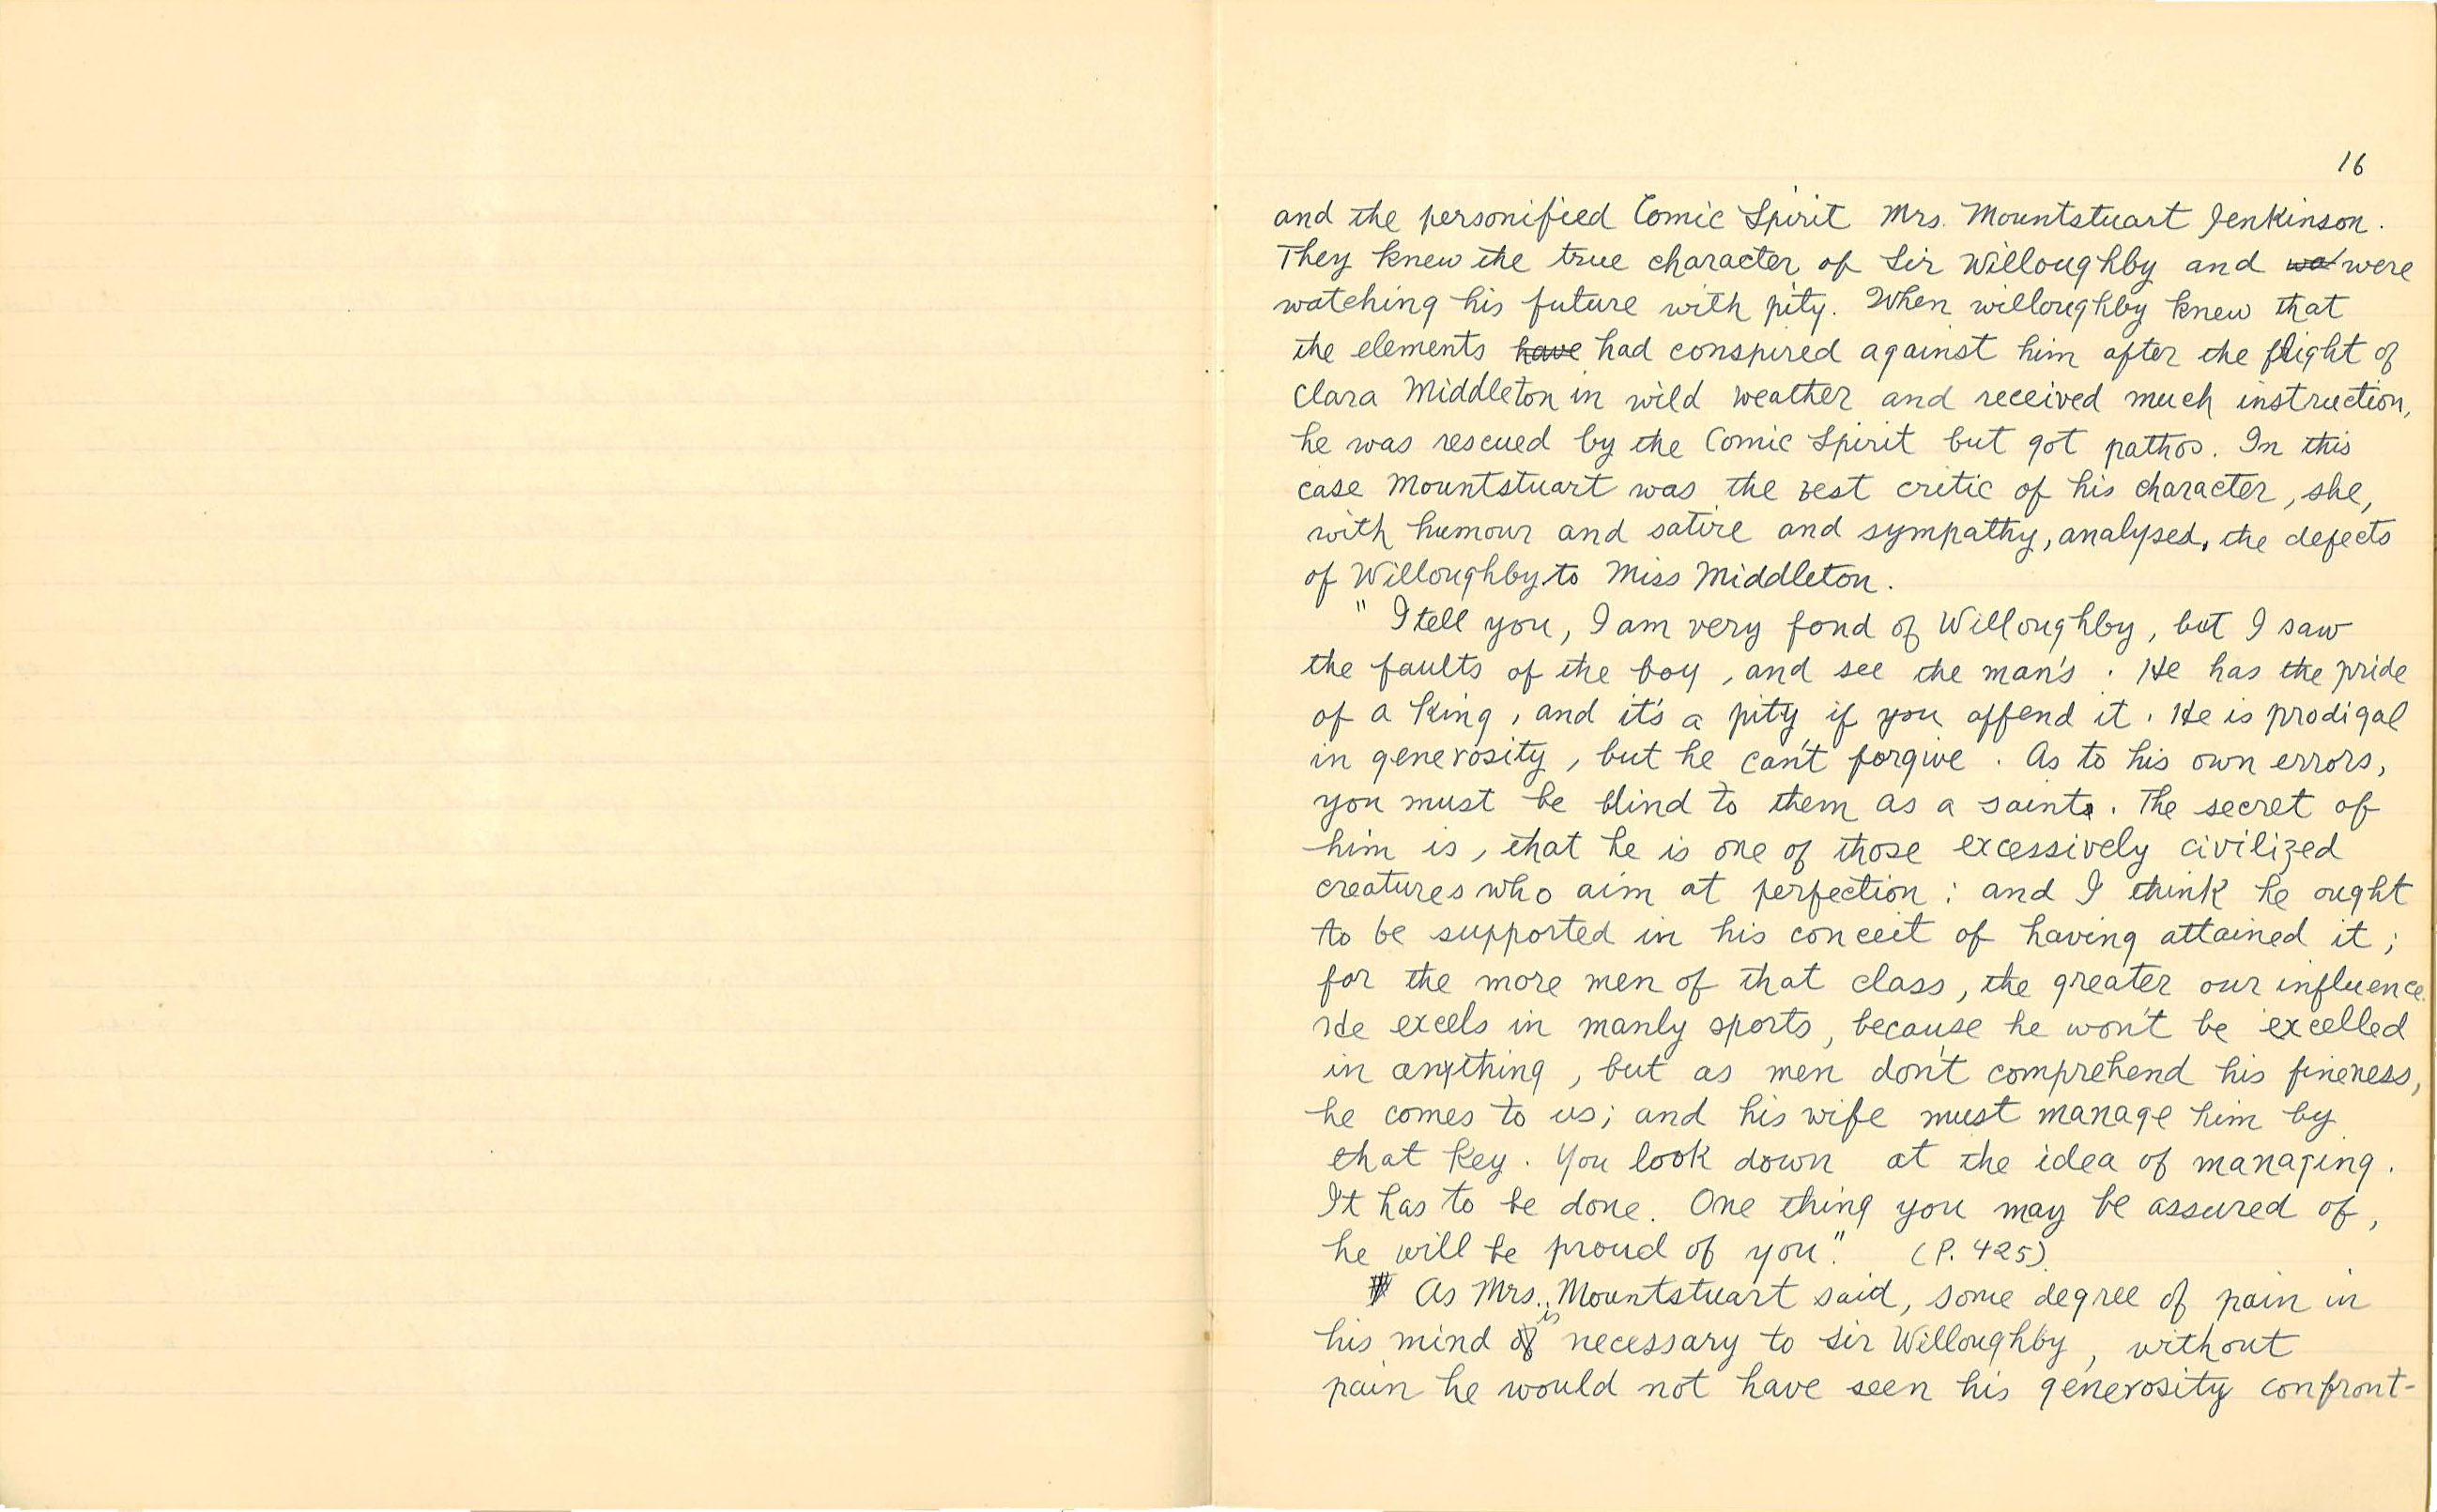 16
and the personified Comic Spirit Mrs. Mountstuart Jenkinson.
They knew the true character of Sir Willoughby and wa were
watching his future with pity. When willoughby knew that
the elements have had conspired against him after the flight of
Clara Middleton in wild weather and received much instruction,
he was rescued by the Comic Spirit but got pathos. In this
case Mountstuart was the best critic of his character, she,
with humour and satire and sympathy, analysed, the defects
of Willoughby to Miss Middleton.
" I tell you, I am very fond of Willoughby, but I saw
the faults of the boy, and see the man's. He has the pride
of a King, and it's a pity if you offend it. He is prodigal
in generosity, but he can't forgive. As to his own errors,
you must be blind to them as a saint. The secret of
him is, that he is one of those excessively civilized
creatures who aim at perfection: and I think he ought
to be supported in his conceit of having attained it;
for the more men of that class, the greater our influence.
He excels in manly sports, because he won't be excelled
in anything, but as men don't comprehend his fineness,
he comes to us; and his wife must manage him by
that key. You look down at the idea of managing.
It has to be done. One thing you may be assured of,
he will be proud of you." (P. 425)
As Mrs. Mountstuart said, some degree of pain in
his mind is necessary to Sir Willoughby, without
pain he would not have seen his generosity confront-